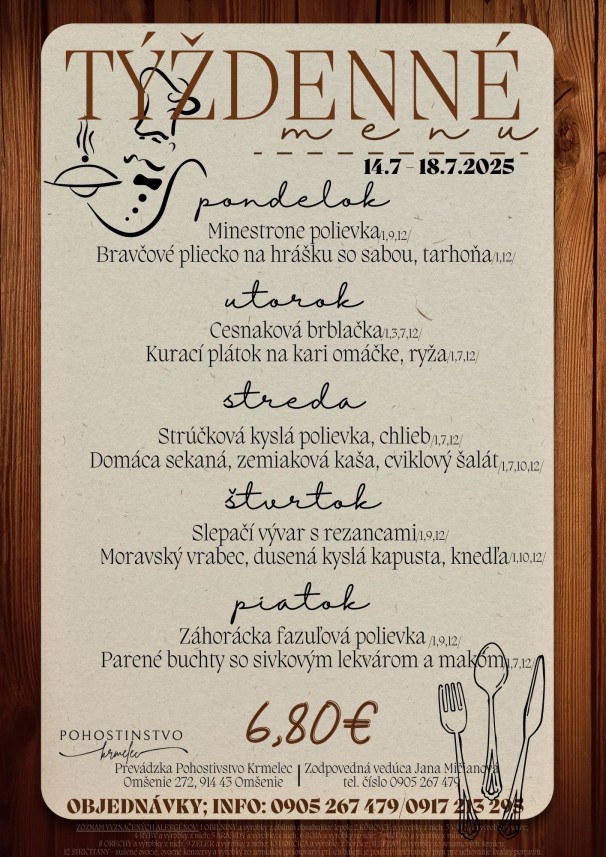 TÝŽDENNÉ
menu
14.7 - 18.7.2025
pondelok
Minestrone polievka/1,9,12/
Bravčové pliecko na hrášku so sabou, tarhoňa/1,12/
utorok
Cesnaková brblačka/1,3,7,12/
Kurací plátok na kari omáčke, ryža/1,7,12/
streda
Strúčková kyslá polievka, chlieb/1,7,12/
Domáca sekaná, zemiaková kaša, cviklový šalát/1,7,10,12/
štvrtok
Slepačí vývar s rezancami/1,9,12/
Moravský vrabec, dusená kyslá kapusta, knedľa/1,10,12/
piatok
Záhorácka fazuľová polievka /1,9,12/
Parené buchty so sivkovým lekvárom a makóm/1,7,12/
6,80€
POHOSTINSTVO
krmelec
Prevádzka Pohostivstvo Krmelec | Zodpovedná vedúca Jana Mičianová
Omšenie 272, 914 43 Omšenie | tel. číslo 0905 267 479
OBJEDNÁVKY; INFO: 0905 267 479/0917 213 295
ZOZNAM VYZNAČENÝCH ALERGÉNOV: 1 OBILNINY